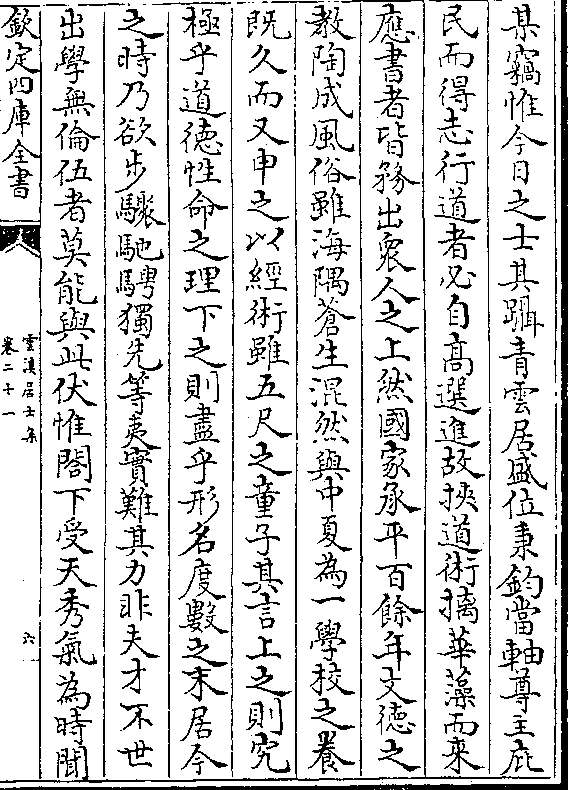 某竊惟今日之士其躡青雲居盛位秉鈞當軸尊主庇
民而得志行道者必自高選進故挾道術摛華藻而來
應書者皆務出衆人之上然國家承平百餘年文德之
教陶成風俗雖海隅蒼生混然與中夏為一學校之養
既久而又申之以經術雖五尺之童子其言上之則究
極乎道德性命之理下之則盡乎形名度數之末居今
之時乃欲步驟馳騁獨先等夷實難其力非夫才不世
出學無倫伍者莫能與此伏惟閤下受天秀氣為時聞
欽定四庫全書
雲溪居士集
卷二十一
六